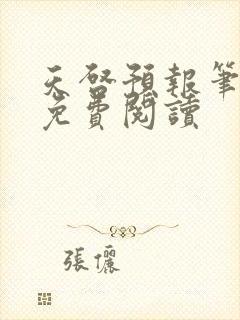 天啓預報筆
免費閱讀
張儷